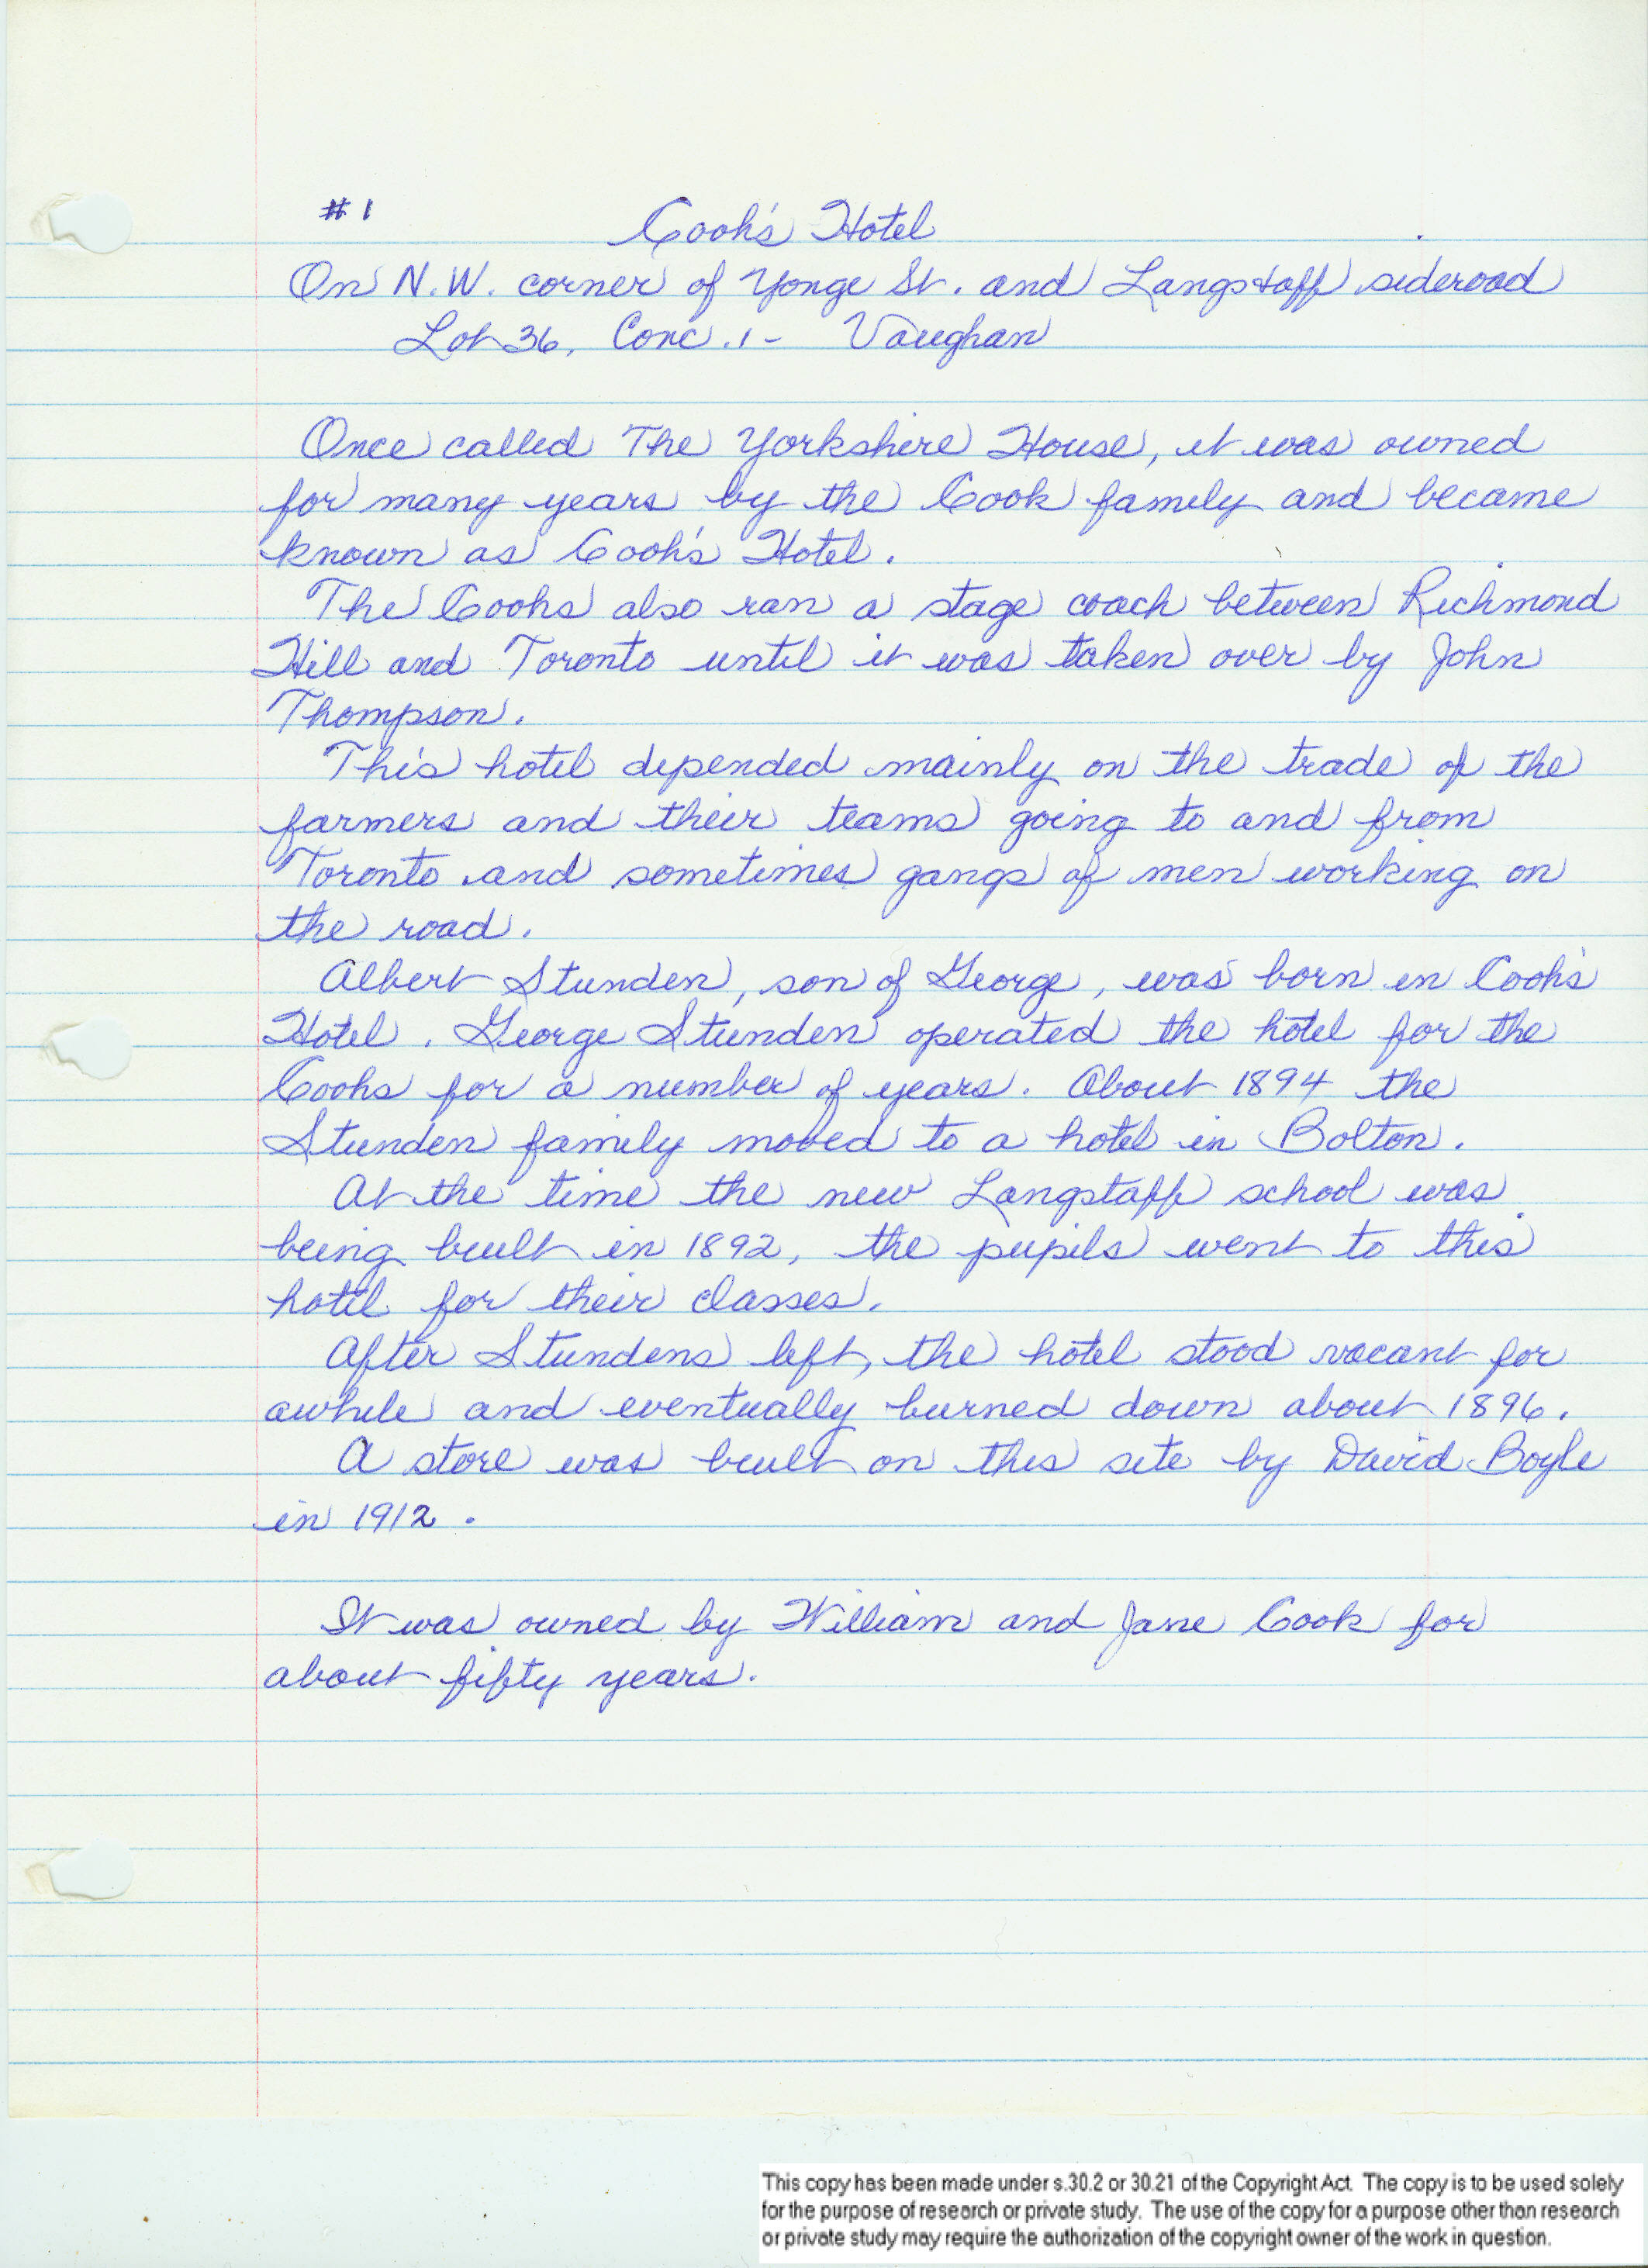 #1 Cook's Hotel
On N.W. corner of Yonge St. and Langstaff sideroad
Lot 36, Conc. 1 - Vaughan
Once called The Yorkshire House, it was owned
for many years by the Cook family and became
known as Cook's Hotel.
The Cooks also ran a stage coach between Richmond
Hill and Toronto until it was taken over by John
Thompson.
This hotel depended mainly on the trade of the
farmers and their teams going to and from
Toronto and sometimes gangs of men working on
the road.
Albert Stunden, son of George, was born in Cook's
Hotel. George Stunden operated the hotel for the
Cooks for a number of years. About 1894 the
Stunden family moved to a hotel in Bolton.
At the time the new Langstaff school was
being built in 1892, the pupils went to this
hotel for their classes.
After Stundens left, the hotel stood vacant for
awhile and eventually burned down about 1896.
A store was built on this site by David Boyle
in 1912.
It was owned by William and Jane Cook for
about fifty years.
This copy has been made under s.30.2 or 30.21 of the Copyright Act. The copy is to be used solely
for the purpose of research or private study. The use of the copy for a purpose other than research
or private study may require the authorization of the copyright owner of the work in question.